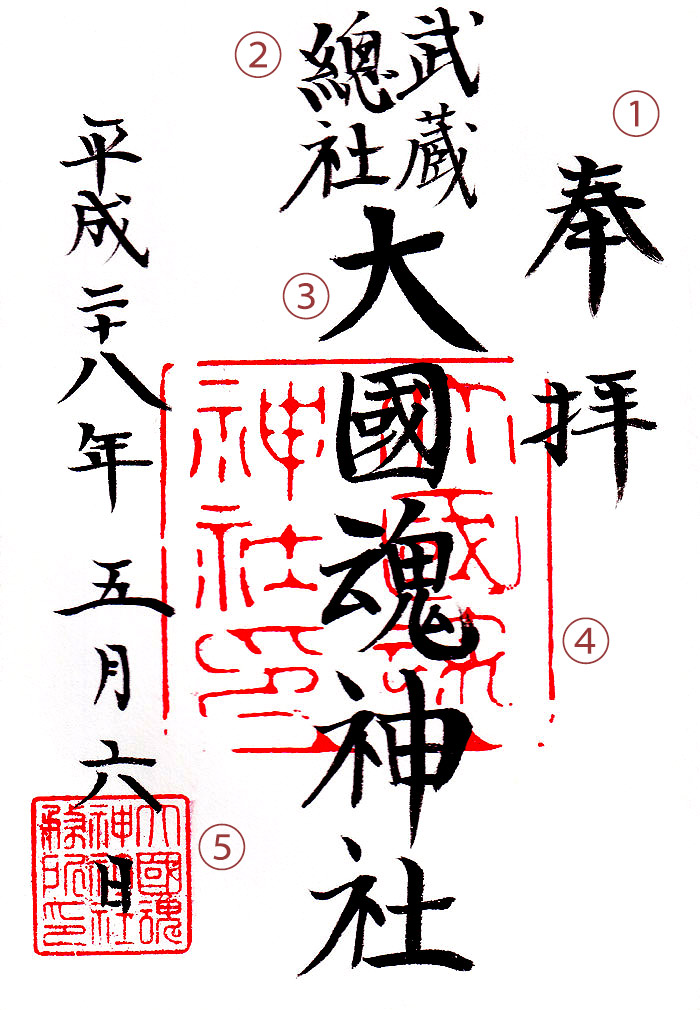 ①
奉拝
②
武蔵
總社
③
大國魂神社
④
大國魂
神社印
平成二十八年五月六日
⑤
大國魂
神社社
務所印